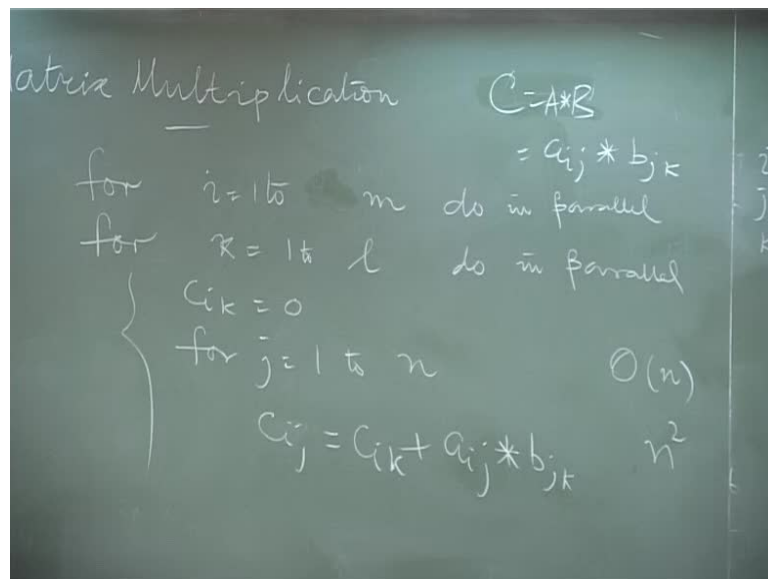 Matrix Multiplication
C=A*B
= aij * bjk
for i=1 to m do in parallel
for k=1 to l do in parallel
Cik = 0
for j=1 to n
O(n)
Cij = Cik + aij * bjk
n²
i
j
k